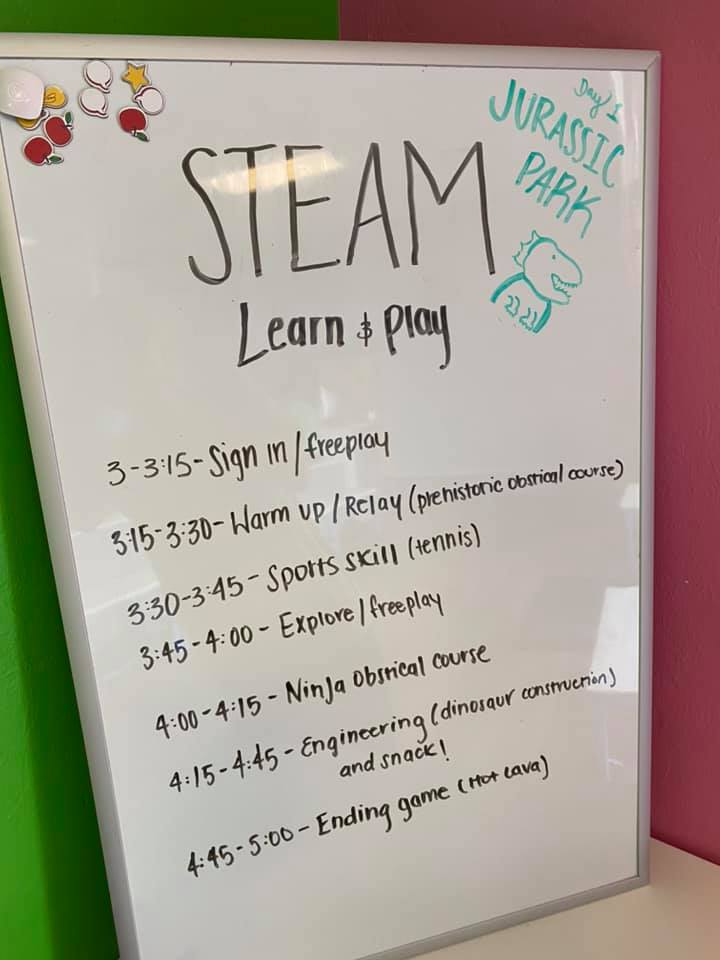 Day 1
JURASSIC
PARK
STEAM
Learn & Play
3-3:15-Sign in/freeplay
3:15-3:30-Warm up/Relay (prehistoric obstical course)
3:30-3:45-Sports skill (tennis)
3:45-4:00-Explore/freeplay
4:00-4:15-Ninja obstical course
4:15-4:45-Engineering (dinosaur construction)
and snack!
4:45-5:00-Ending game (Hot Lava)